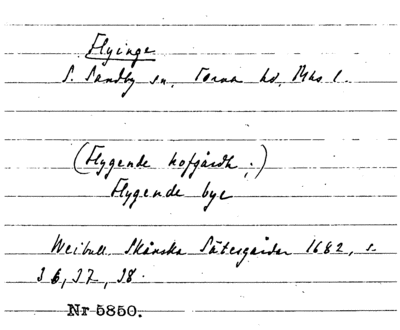 Flyinge
S. Sandby sn, Torna hd, Mhs l.
(Flygende hofgårdh;)
Flygende bye
Weibull Skånska Sätesgårdar 1682, s.
36, 37, 38.
Nr 5850.